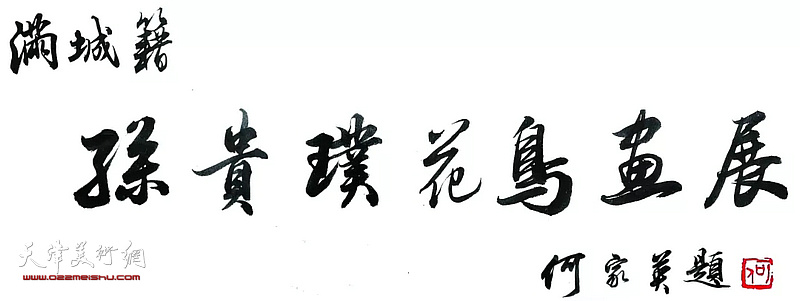 滿城籍
孫貴璞花鳥畫展
何家英題
何
天津美術網
www.022meishu.com